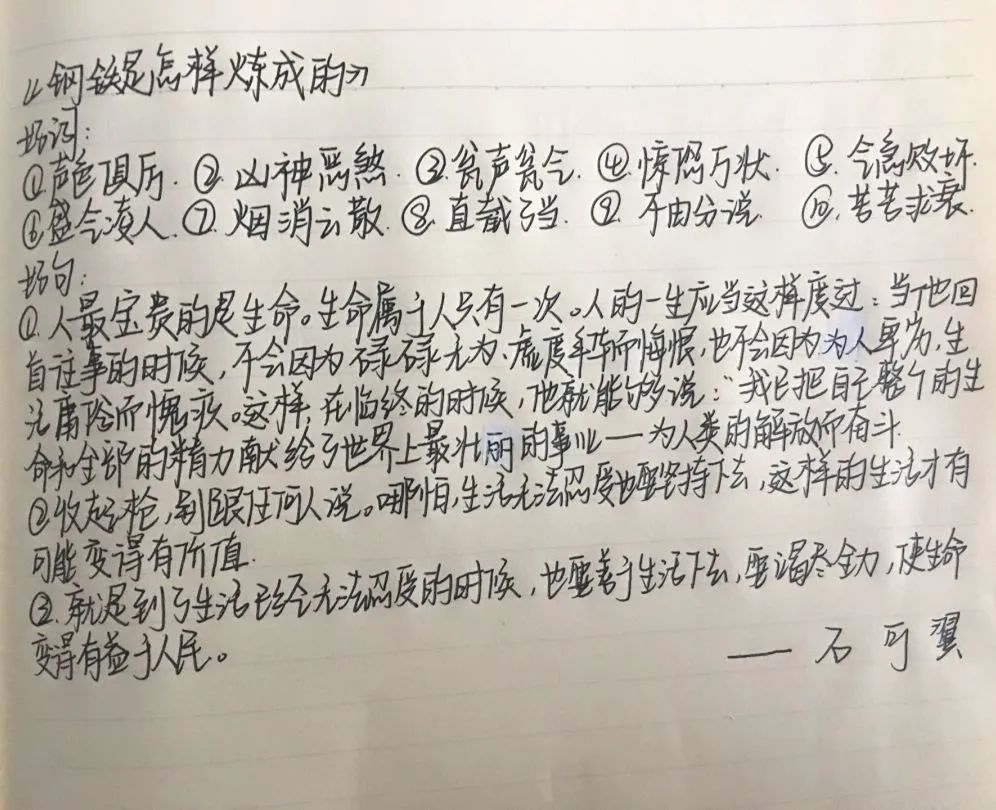 《钢铁是怎样炼成的》
好词:
①声色俱厉. ②凶神恶煞. ③瓮声瓮气. ④惊恐万状. ⑤气急败坏.
⑥盛气凌人. ⑦烟消云散. ⑧直截了当. ⑨不由分说. ⑩苦苦求哀.
好句:
①人最宝贵的是生命。生命属于人只有一次。人的一生应当这样度过:当他回
首往事的时候,不会因为碌碌无为、虚度年华而悔恨,也不会因为为人卑劣,生
活庸俗而愧疚。这样,在临终的时候,他就能够说:“我已把自己整个的生
命和全部的精力献给了世界上最壮丽的事业——为人类的解放而奋斗.
②收起枪,别跟任何人说。哪怕,生活无法忍受也要坚持下去,这样的生活才有
可能变得有价值.
③.就是到了生活已经无法忍受的时候,也要善于生活下去,要竭尽全力,使生命
变得有益于人民。
——石可翼